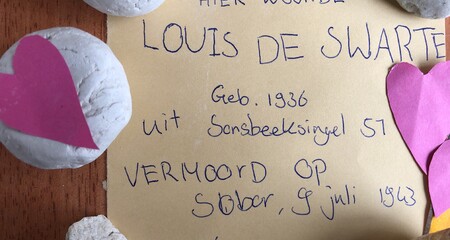 HIER WOONDE
LOUIS DE SWARTE
Geb. 1936
uit Sonsbeeksingel 51
VERMOORD OP
Sobor, 9 juli 1943